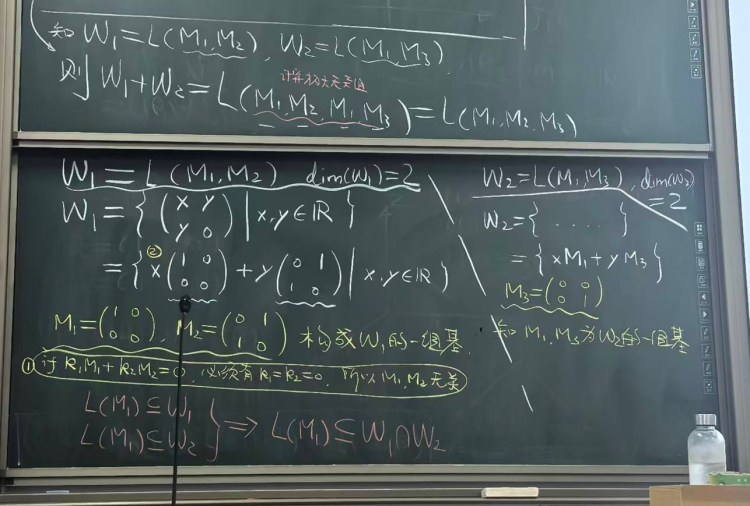 知 W₁=L(M₁,M₂), W₂=L(M₁,M₃)
计算极大无关组
则 W₁+W₂=L(M₁,M₂,M₁,M₃)=L(M₁,M₂,M₃)
W₁=L(M₁,M₂) dim(W₁)=2
W₁={(x y; y 0) | x,y∈ℝ}
={x(1 0; 0 0)+y(0 1; 1 0) | x,y∈ℝ}
②
M₁=(1 0; 0 0), M₂=(0 1; 1 0) 构成W₁的一组基.
① 计 k₁M₁+k₂M₂=0, 必须有k₁=k₂=0, 所以M₁,M₂无关
L(M₁)⊆W₁
L(M₁)⊆W₂ } ⇒ L(M₁)⊆W₁∩W₂
W₂=L(M₁,M₃), dim(W₂)=2
W₂={.....}
={xM₁+yM₃}
M₃=(0 0; 0 1)
知 M₁,M₃为W₂的一组基